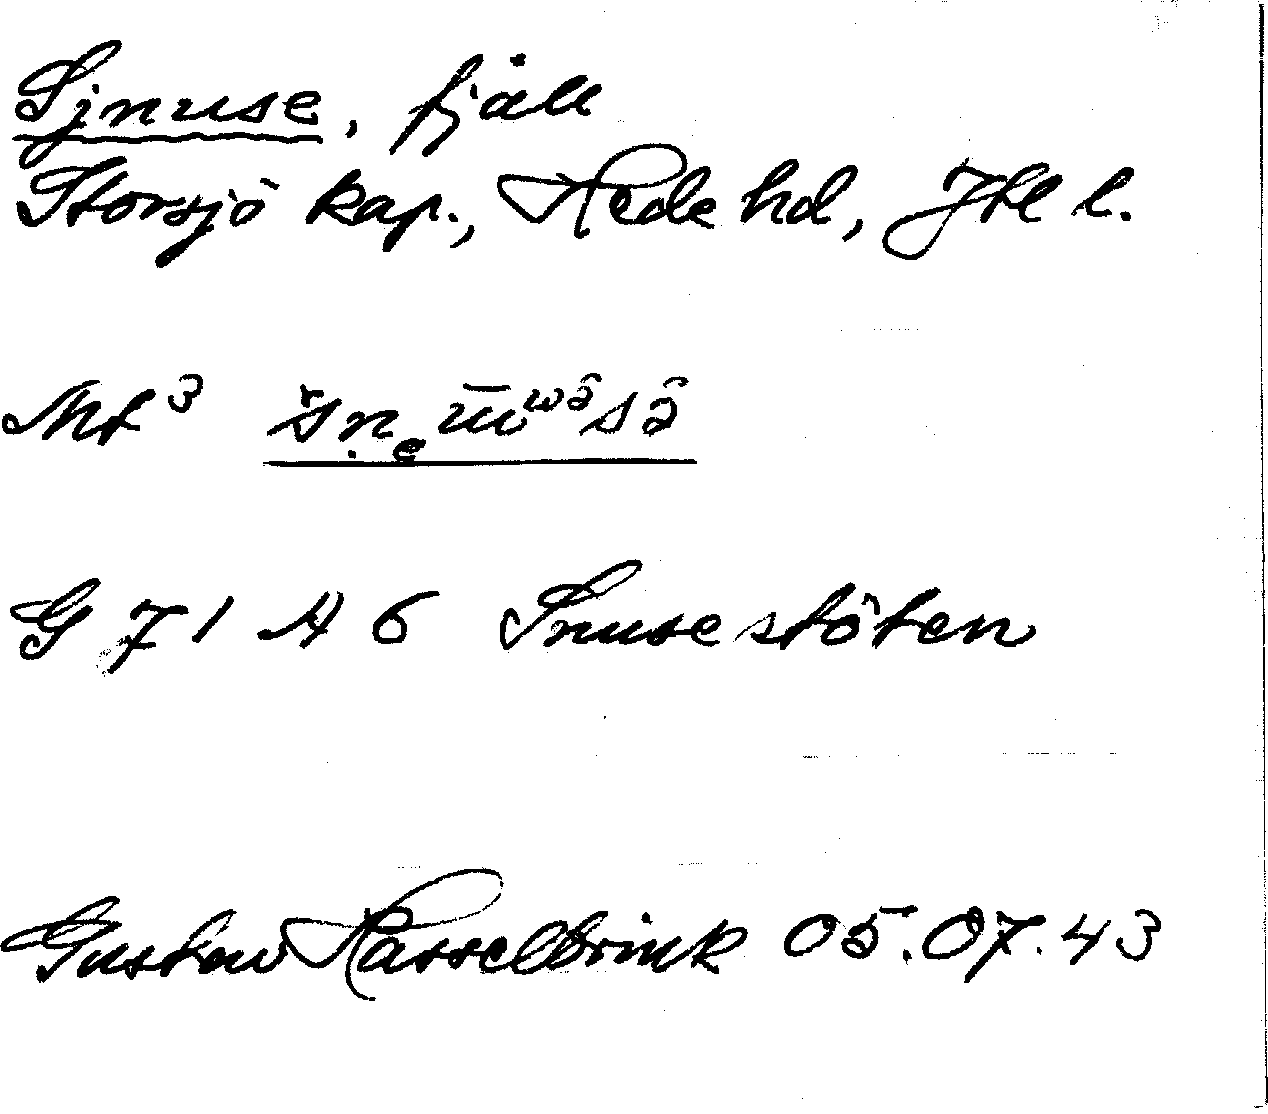 Sjnuse, fjäll
Storsjö kap., Hede hd, Jtl l.
Mt³
G 71 A 6 Snusestöten
Gustav Hasselbrink 05.07.43